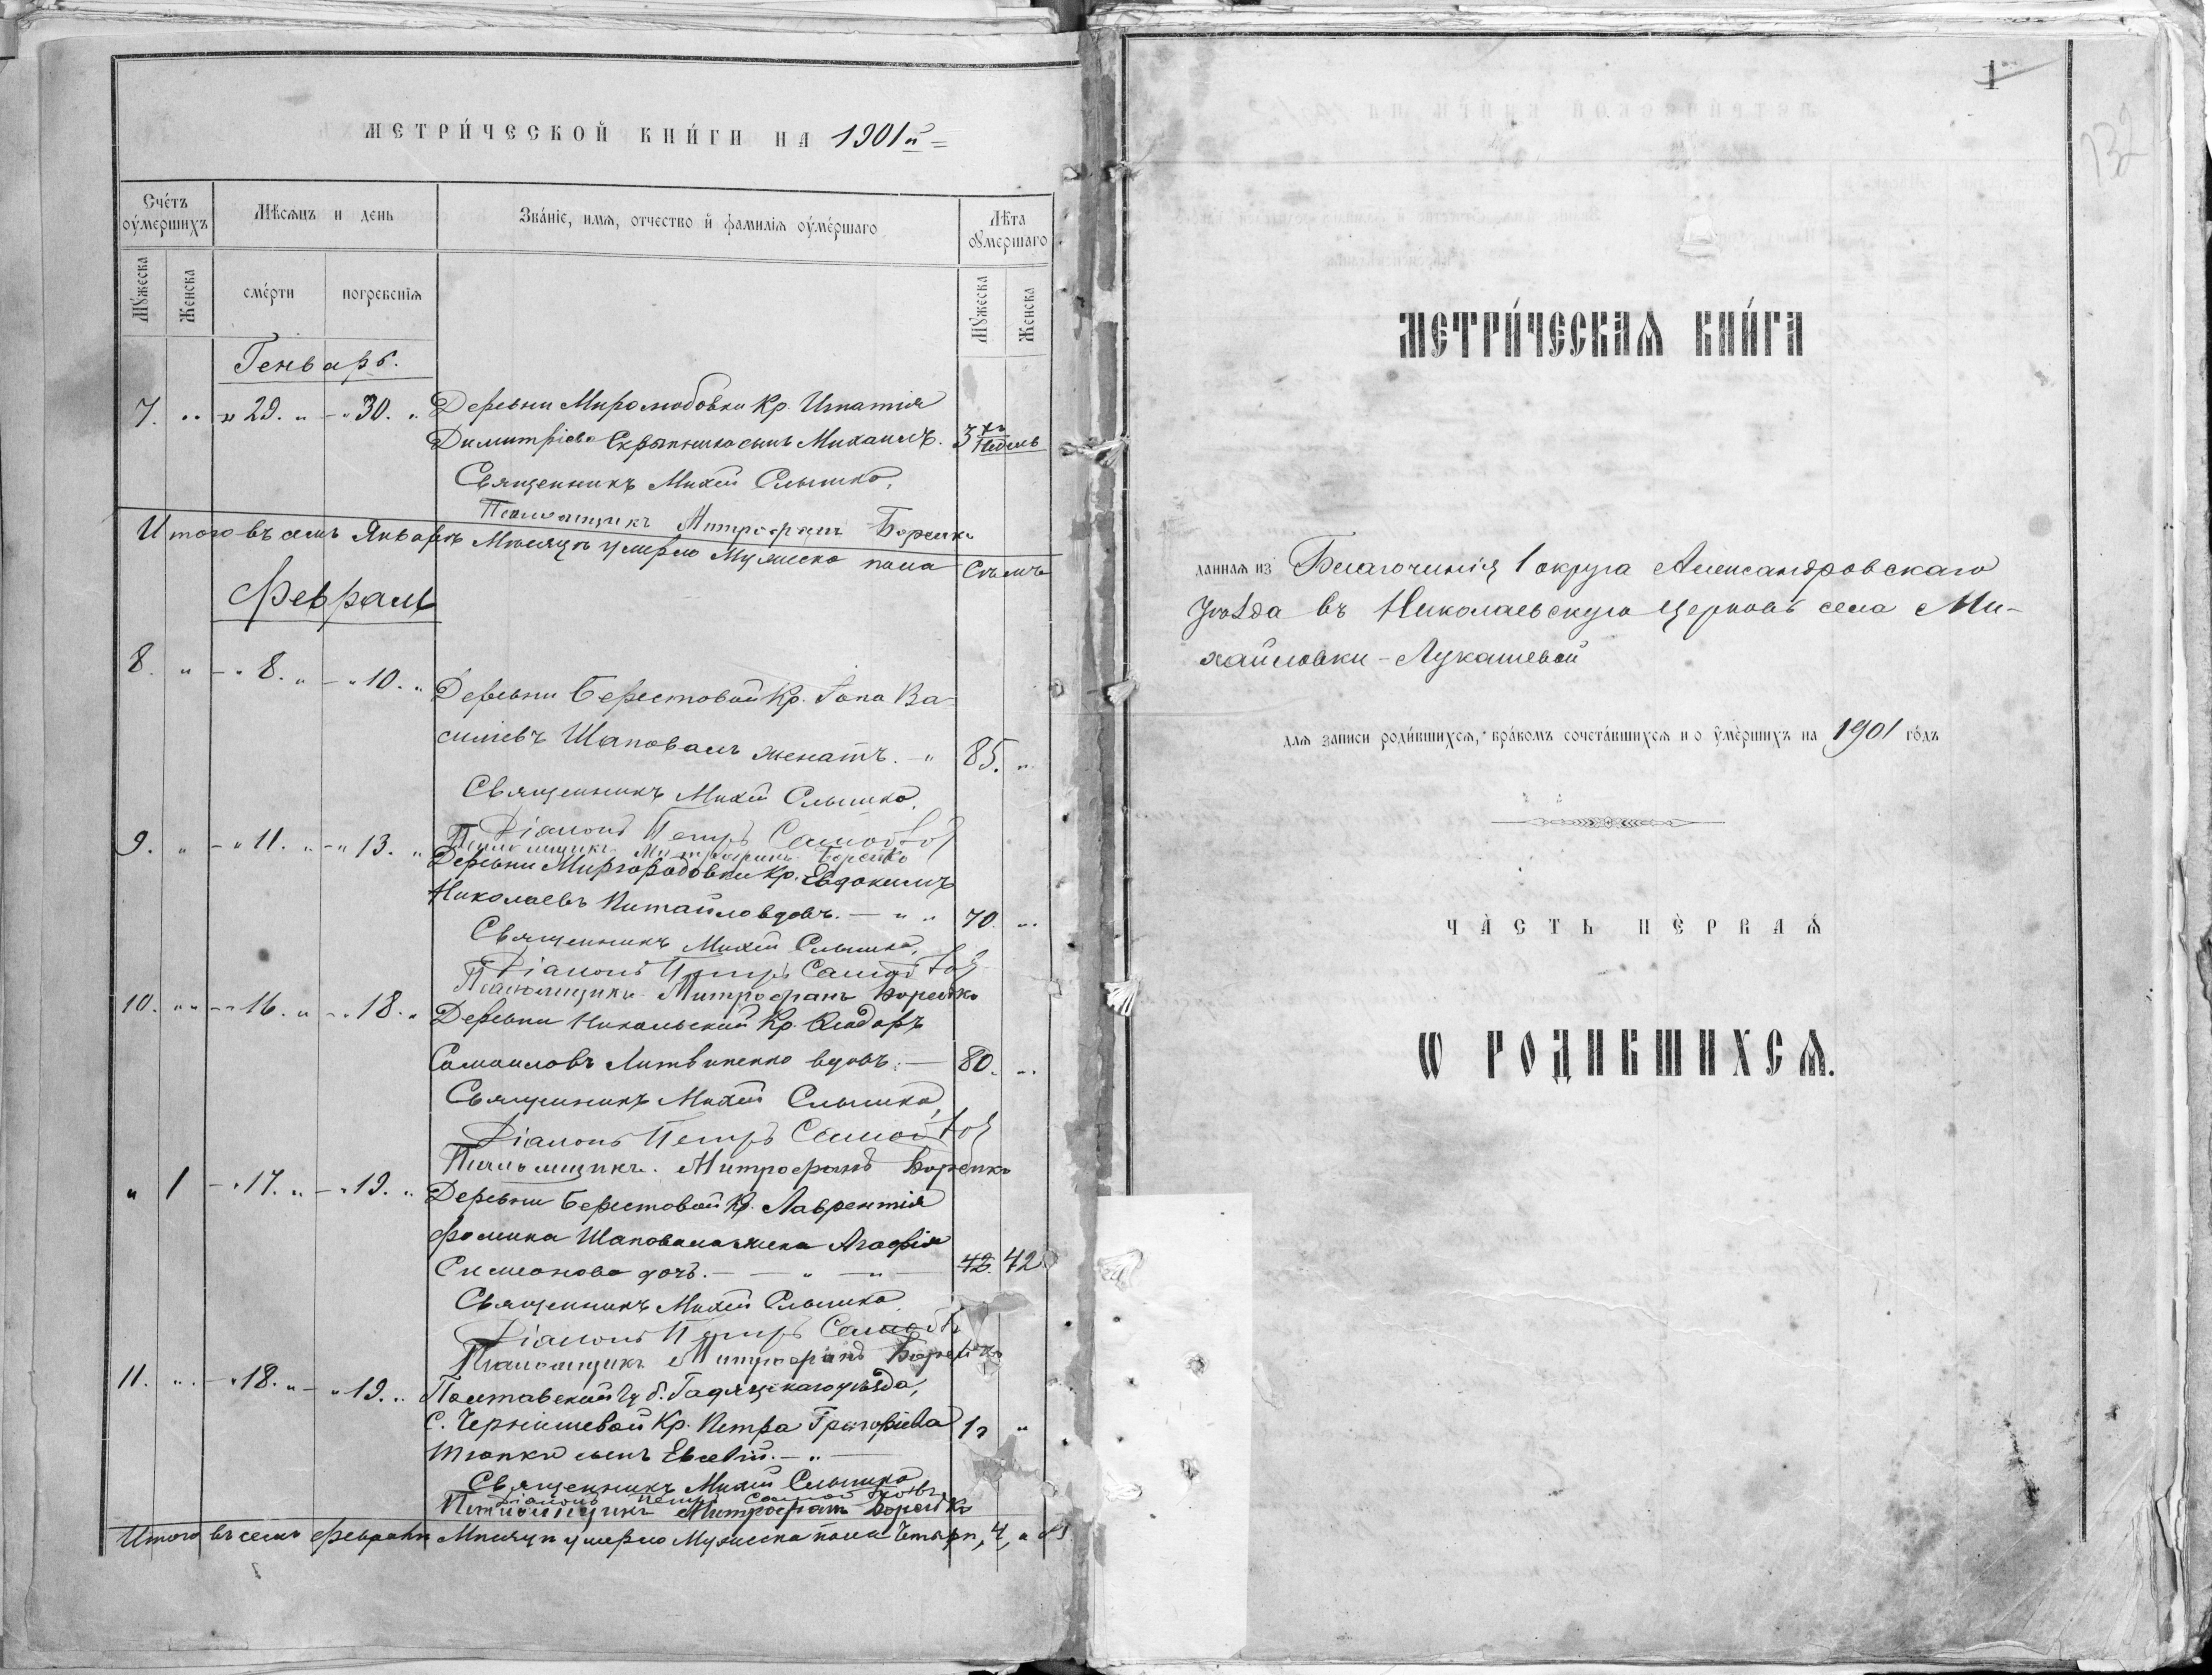 МЕТРИ́ЧЕСКОЙ КНИ́ГИ НА 1901й
Сче́тъ оу҆ме́ршихъ
Мѣсяцъ и день
Зва́ніе, имя, отчество и҆ фамилія оу҆ме́ршаго
Лѣта оумершаго
Мꙋжеска
Женска
сме́рти
погребенія
Мꙋжеска
Женска
Генварь.
7. " " 29. " - " 30. " Деревни Миролюбовки Кр. Игнатія
Димитріева Скрыпника сынъ Михаилъ. 3хъ недель
Священникъ Михей Слышко.
Псаломщикъ Митрофанъ Борейко
Итого въ семъ Январѣ Мѣсяцѣ умерло Мужеска пола Семь
Февраль
8. " - " 8. " - " 10. " Деревни Берестовой Кр. Іона Ва-
силіевъ Шаповалъ женатъ. - " 85. "
Священникъ Михей Слышко.
Діаконъ Петръ
Псаломщикъ Митрофанъ Борейко
9. " - " 11. " - " 13. " Деревни Миргородовки Кр. Евдокимъ
Николаевъ Китайло вдовъ. - " " 70. "
Священникъ Михей Слышко.
Діаконъ Петръ
Псаломщикъ Митрофанъ Борейко
10. " " - " 16. " - " 18. " Деревни Никольской Кр.
Самоиловъ Литвиненко вдовъ. - 80. "
Священникъ Михей Слышко,
Діаконъ Петръ
Псаломщикъ. Митрофанъ Борейко
" 1 - " 17. " - " 19. " Деревни Берестовой Кр. Лаврентія
Фомина Шаповала жена Агафія
Симеонова дочь. - - " - " - 42. 42
Священникъ Михей Слышко.
Діаконъ Петръ
Псаломщикъ Митрофанъ Борейко
11. " - " 18. " - " 19. " Полтавской Губ. Гадячскаго уѣзда,
С. Чернишевой Кр. Петра Григоріева 1г "
сынъ Евсевій. - " -
Священникъ Михей Слышко
Діаконъ Петръ
Псаломщикъ Митрофанъ Борейко
Итого въ семъ Февралѣ Мѣсяцѣ умерло Мужеска пола Четыри, 4,
1
132
МЕТРИ́ЧЕСКАЯ КНИ́ГА
данная из Благочинія 1 округа Александровскаго
Уѣзда въ Николаевскую церковь села Ми-
хайловки-Лукашевой
для записи роди́вшихся, бра́комъ сочета́вшихся и о у҆ме́ршихъ на 1901 го́дъ
ЧА́СТЬ ПЕ́РВАЯ
Ѡ РОДИВШИХСЯ.